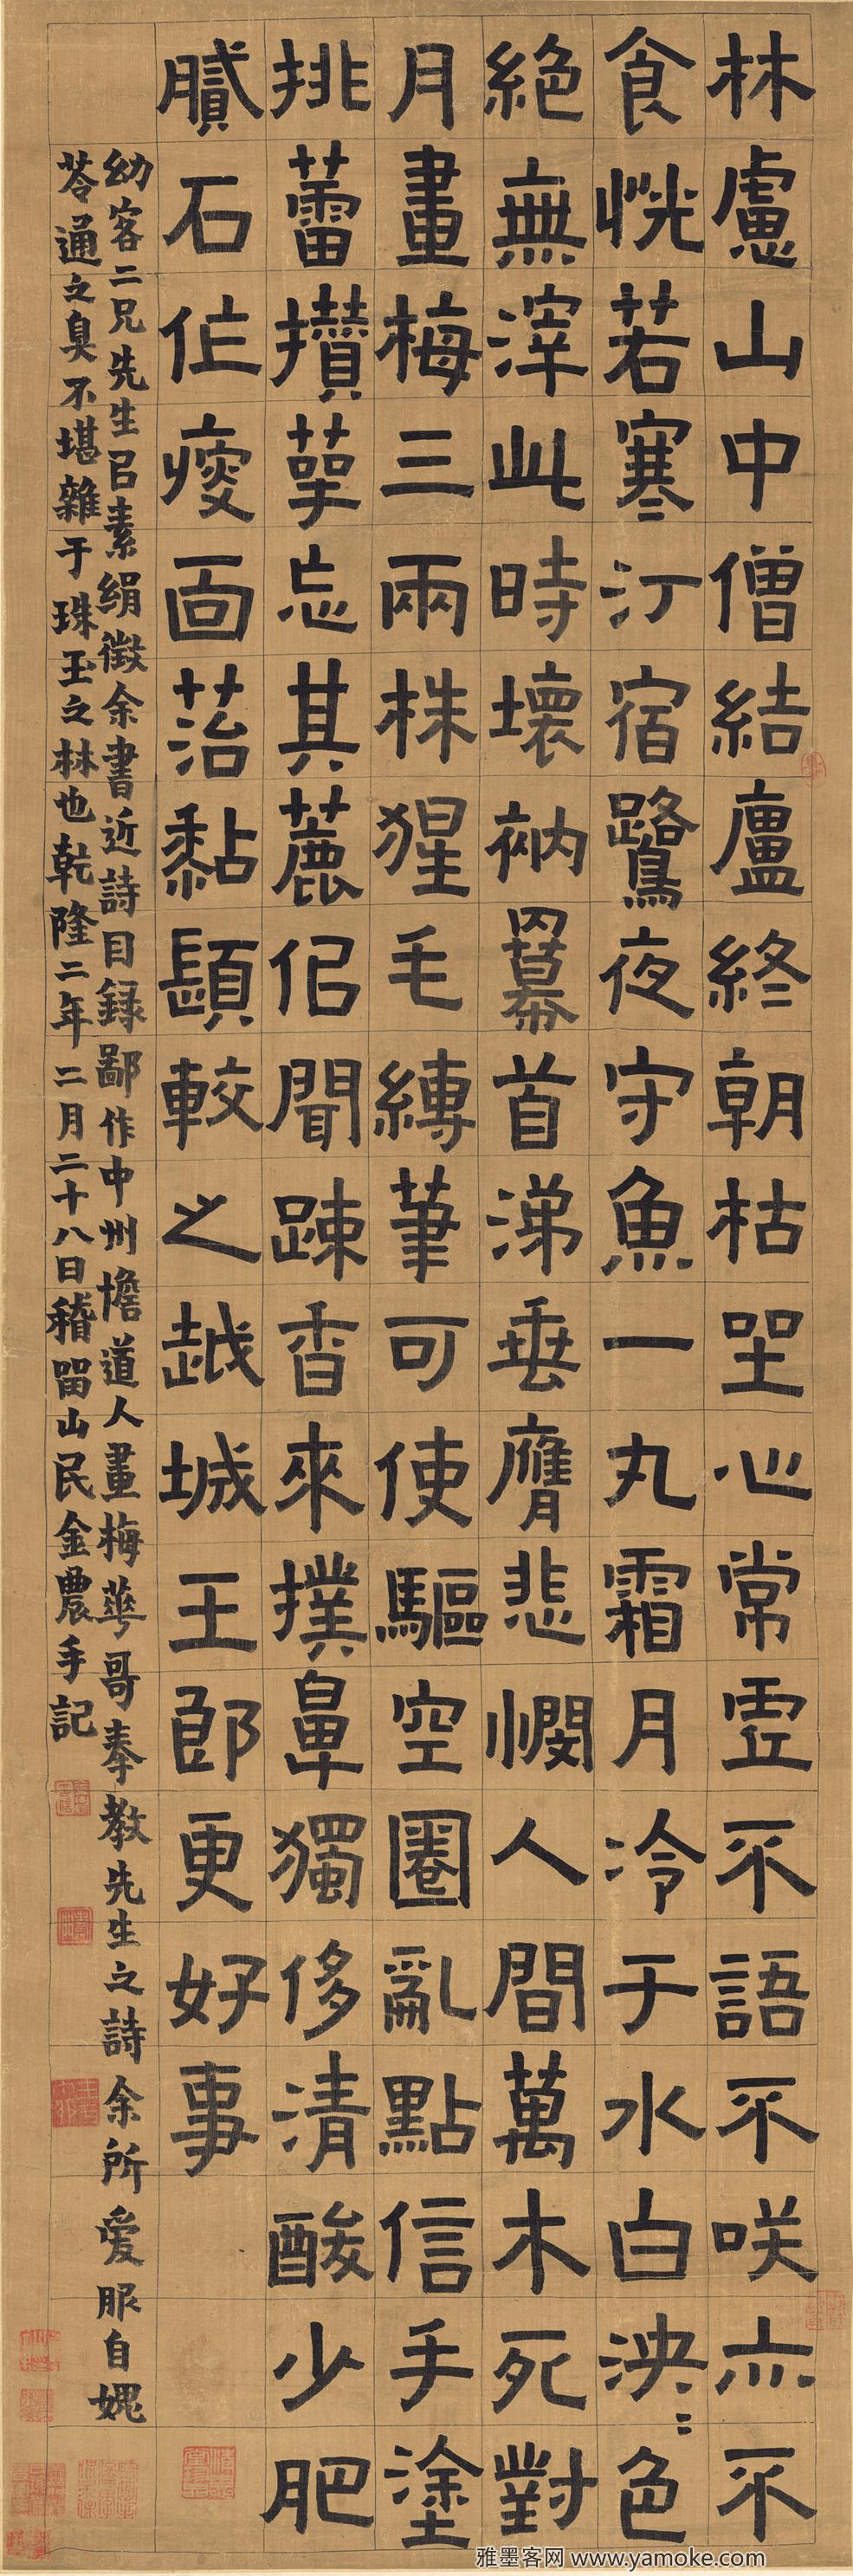 林慮山中僧結廬終朝枯坐心常虛不語不咲亦不
食恍若寒汀宿鷺夜守魚一丸霜月冷于水白泱〻色
絕無滓此時壞衲羃首涕垂膺悲憫人間萬木死對
月畫梅三兩株猩毛縛筆可使驅空圈亂點信手塗
挑蕾攢萼忘其麤但聞踈香來撲鼻獨侈清酸少肥
膩石作瘦面苔黏顋較之越城王郎更好事
幼客二兄先生㠯素絹徵余書近詩目録鄙作中州憺道人畫梅華哥奉教先生之詩余所愛服自媿
苓通之臭不堪雜于珠玉之林也乾隆二年二月二十八日稽畱山民金農手記
雅墨客网 www.yamoke.com